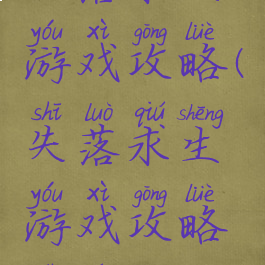 yóu xì gōng lüè
游戏攻略(
shī luò qiú shēng
失落求生
yóu xì gōng lüè
游戏攻略